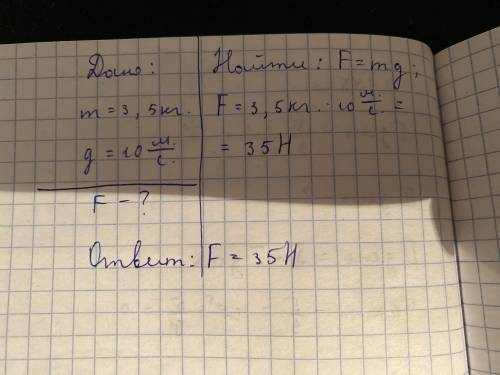 Дано:
m = 3,5 кг.
g = 10 м/с.
F - ?
Найти: F = mg;
F = 3,5 кг. · 10 м/с. =
= 35 Н
Ответ: F = 35 Н